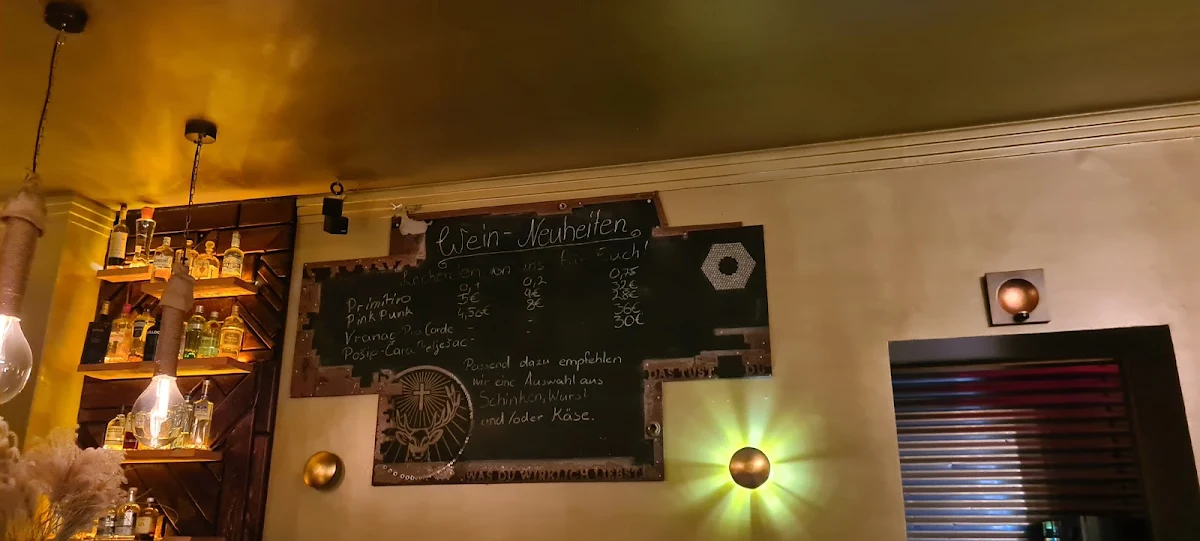 Wein-Neuheiten
von uns für Euch!
0,1 0,2 0,75
Primitivo 5€ 9€ 32€
Pink Punk 4,50€ 8€ 28€
Vranac - - 36€
Pošip-Čara - 30€
Passend dazu empfehlen
wir eine Auswahl aus
Schinken, Wurst
und/oder Käse.
DAS TUST DU,
WAS DU WIRKLICH LIEBST!